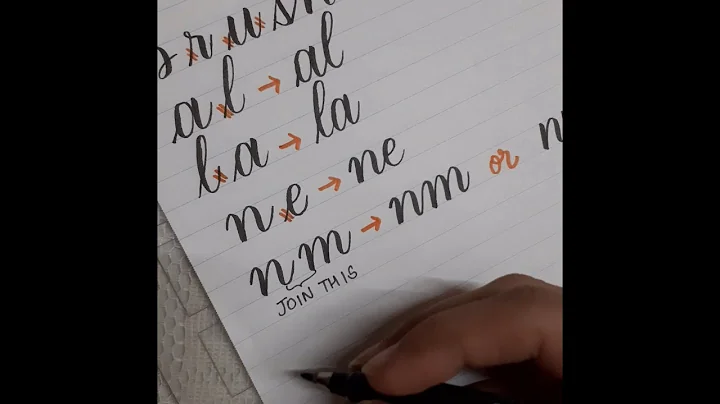 a l → al
l a → la
n e → ne
n m → nm or
JOIN THIS